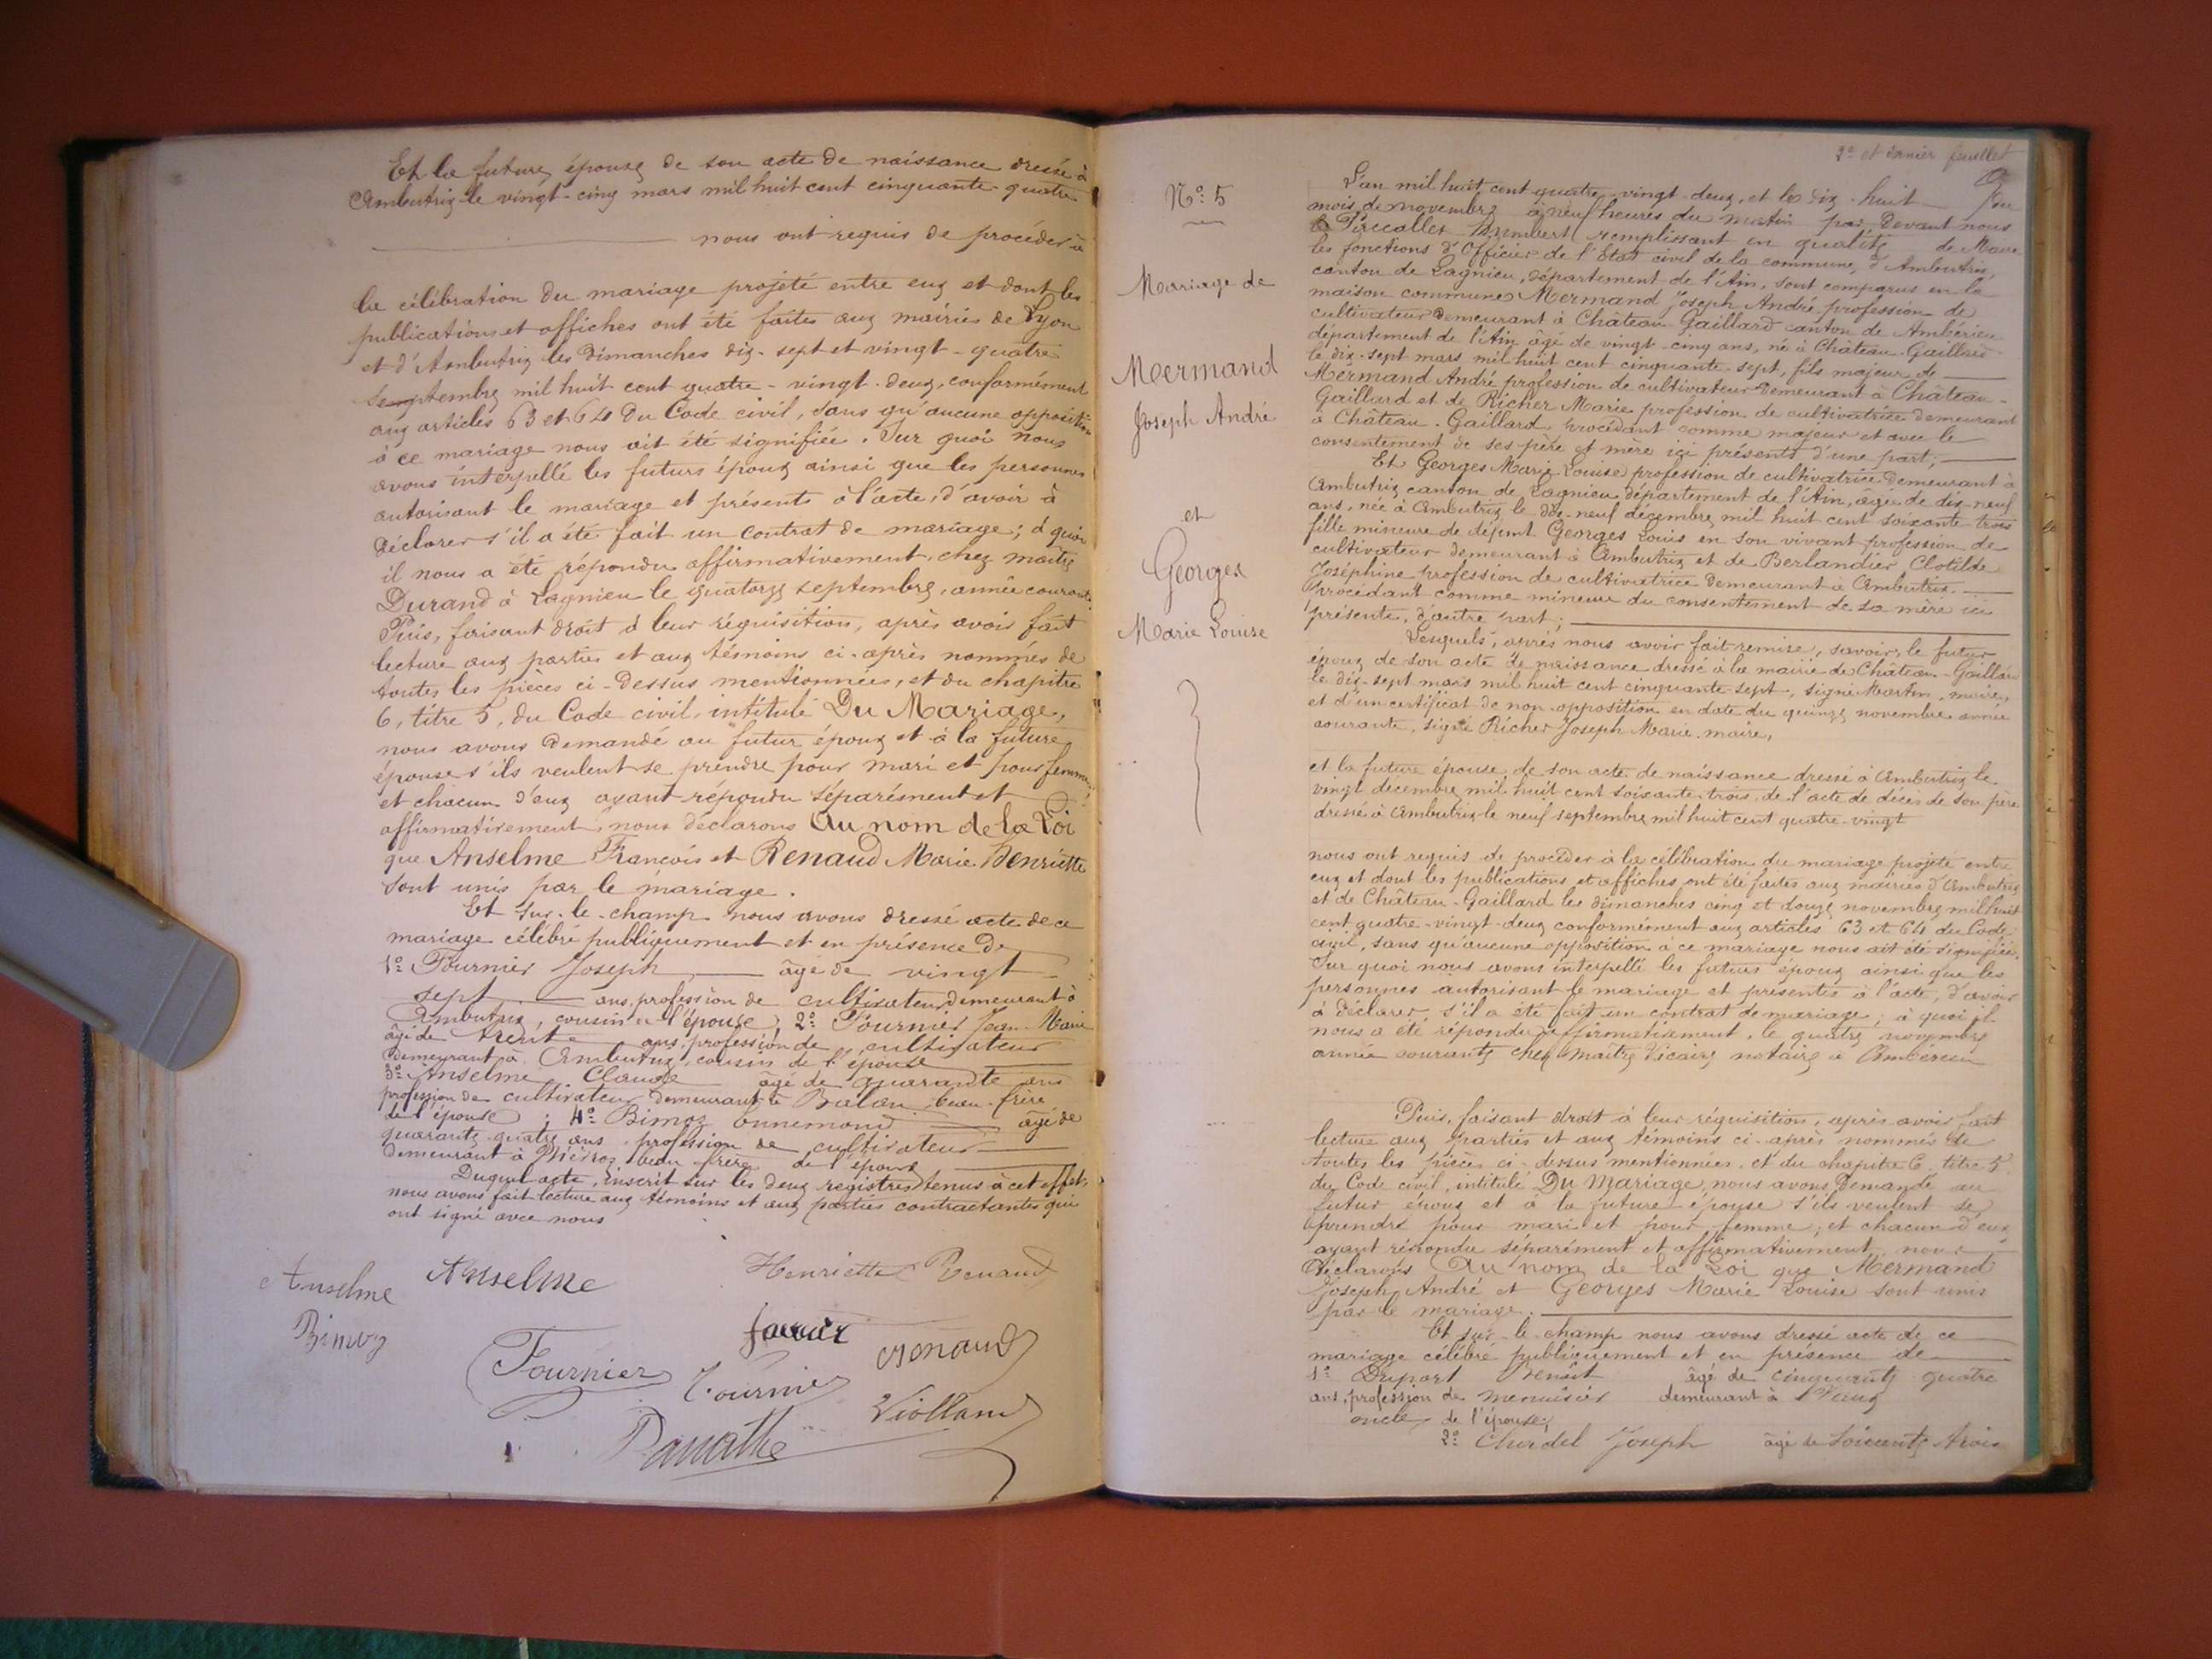 Et la future épouse de son acte de naissance dressé à
Ambutrix le vingt-cinq mars mil huit cent cinquante-quatre
nous ont requis de procéder à
la célébration du mariage projeté entre eux et dont les
publications et affiches ont été faites aux mairies de Lyon
et d'Ambutrix les dimanches dix-sept et vingt-quatre
septembre mil huit cent quatre-vingt-deux, conformément
aux articles 63 et 64 du Code civil, sans qu'aucune opposition
à ce mariage nous ait été signifiée. Sur quoi nous
avons interpellé les futurs époux ainsi que les personnes
autorisant le mariage et présents à l'acte, d'avoir à
déclarer s'il a été fait un contrat de mariage; à quoi
il nous a été répondu affirmativement, chez maître
Durand à Lagnieu le quatorze septembre, année courante.
Puis, faisant droit à leur réquisition, après avoir fait
lecture aux parties et aux témoins ci-après nommés de
toutes les pièces ci-dessus mentionnées, et du chapitre
6, titre 5, du Code civil, intitulé Du Mariage,
nous avons demandé au futur époux et à la future
épouse s'ils veulent se prendre pour mari et pour femme
et chacun d'eux ayant répondu séparément et
affirmativement, nous déclarons Au nom de la Loi
que Anselme François et Renaud Marie Henriette
sont unis par le mariage.
Et sur-le-champ nous avons dressé acte de ce
mariage célébré publiquement et en présence de
1º Fournier Joseph âgé de vingt
sept ans, profession de cultivateur demeurant à
Ambutrix, cousin de l'épouse; 2º Fournier Jean-Marie
âgé de trente ans, profession de cultivateur
demeurant à Ambutrix, cousin de l'épouse
3º Anselme Claude âgé de quarante ans
profession de cultivateur demeurant à Balan beau-frère
de l'épouse; 4º Bimoz Ennemond âgé de
quarante-quatre ans, profession de cultivateur
demeurant à beau frère de l'époux
Duquel acte, inscrit sur les deux registres tenus à cet effet,
nous avons fait lecture aux témoins et aux parties contractantes qui
ont signé avec nous
Anselme Anselme Henriette Renaud
Bimoz
Fournier Fournier Renaud
Violland
2e et dernier feuillet
Nº 5
Mariage de
Mermand
Joseph André
et
Georges
Marie Louise
L'an mil huit cent quatre-vingt-deux, et le dix-huit du
mois de novembre à neuf heures du matin par devant nous
Humbert remplissant en qualité de Maire
les fonctions d'Officier de l'État civil de la commune d'Ambutrix,
canton de Lagnieu, département de l'Ain, sont comparus en la
maison commune Mermand Joseph André profession de
cultivateur demeurant à Château-Gaillard canton de Ambérieu
département de l'Ain âgé de vingt-cinq ans, né à Château-Gaillard
le dix-sept mars mil huit cent cinquante-sept, fils majeur de
Mermand André profession de cultivateur demeurant à Château-
Gaillard et de Richer Marie profession de cultivatrice demeurant
à Château-Gaillard, procédant comme majeur et avec le
consentement de ses père et mère ici présents d'une part;
Et Georges Marie Louise profession de cultivatrice demeurant à
Ambutrix canton de Lagnieu département de l'Ain, âgée de dix-neuf
ans, née à Ambutrix le dix-neuf décembre mil huit cent soixante-trois
fille mineure de défunt Georges Louis en son vivant profession de
cultivateur demeurant à Ambutrix et de Berlandier Clotilde
Joséphine profession de cultivatrice demeurant à Ambutrix.
Procédant comme mineure du consentement de sa mère ici
présente, d'autre part;
Lesquels, après nous avoir fait remise, savoir, le futur
époux de son acte de naissance dressé à la mairie de Château-Gaillard
le dix-sept mars mil huit cent cinquante-sept, signé Martin, maire,
et d'un certificat de non-opposition en date du quinze novembre année
courante, signé Richer Joseph Marie, maire,
et la future épouse de son acte de naissance dressé à Ambutrix le
vingt décembre mil huit cent soixante-trois, de l'acte de décès de son père
dressé à Ambutrix le neuf septembre mil huit cent quatre-vingt
nous ont requis de procéder à la célébration du mariage projeté entre
eux et dont les publications et affiches ont été faites aux mairies d'Ambutrix
et de Château-Gaillard les dimanches cinq et douze novembre mil huit
cent quatre-vingt-deux conformément aux articles 63 et 64 du Code
civil, sans qu'aucune opposition à ce mariage nous ait été signifiée.
Sur quoi nous avons interpellé les futurs époux ainsi que les
personnes autorisant le mariage et présentes à l'acte, d'avoir
à déclarer s'il a été fait un contrat de mariage; à quoi il
nous a été répondu affirmativement, le quatre novembre
année courante chez maître Vicaire notaire à Ambérieu
Puis, faisant droit à leur réquisition, après avoir fait
lecture aux parties et aux témoins ci-après nommés de
toutes les pièces ci-dessus mentionnées, et du chapitre 6, titre 5
du Code civil, intitulé Du Mariage, nous avons demandé au
futur époux et à la future épouse s'ils veulent se
prendre pour mari et pour femme; et chacun d'eux
ayant répondu séparément et affirmativement, nous
déclarons Au nom de la Loi que Mermand
Joseph André et Georges Marie Louise sont unis
par le mariage.
Et sur-le-champ nous avons dressé acte de ce
mariage célébré publiquement et en présence de
1º Duport Benoît âgé de cinquante quatre
ans, profession de menuisier demeurant à Vaux
oncle de l'épouse;
2º Joseph âgé de soixante trois